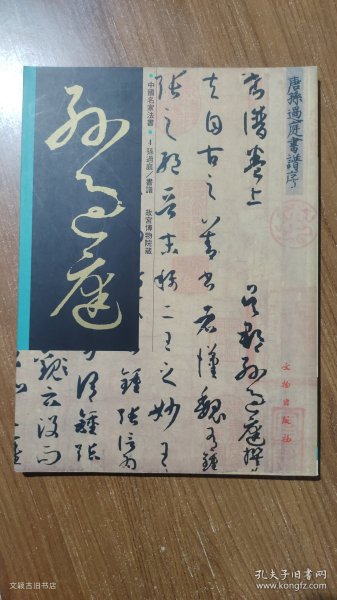 唐孫過庭書譜序
書譜卷上 吳郡孫過庭撰
夫自古之善書者漢魏有鍾
張之絕晉末稱二王之妙王
鍾張信為
孫過庭
·中國名家法書·4 孫過庭/書譜 故宮博物院藏
文物出版社
孔夫子旧书网